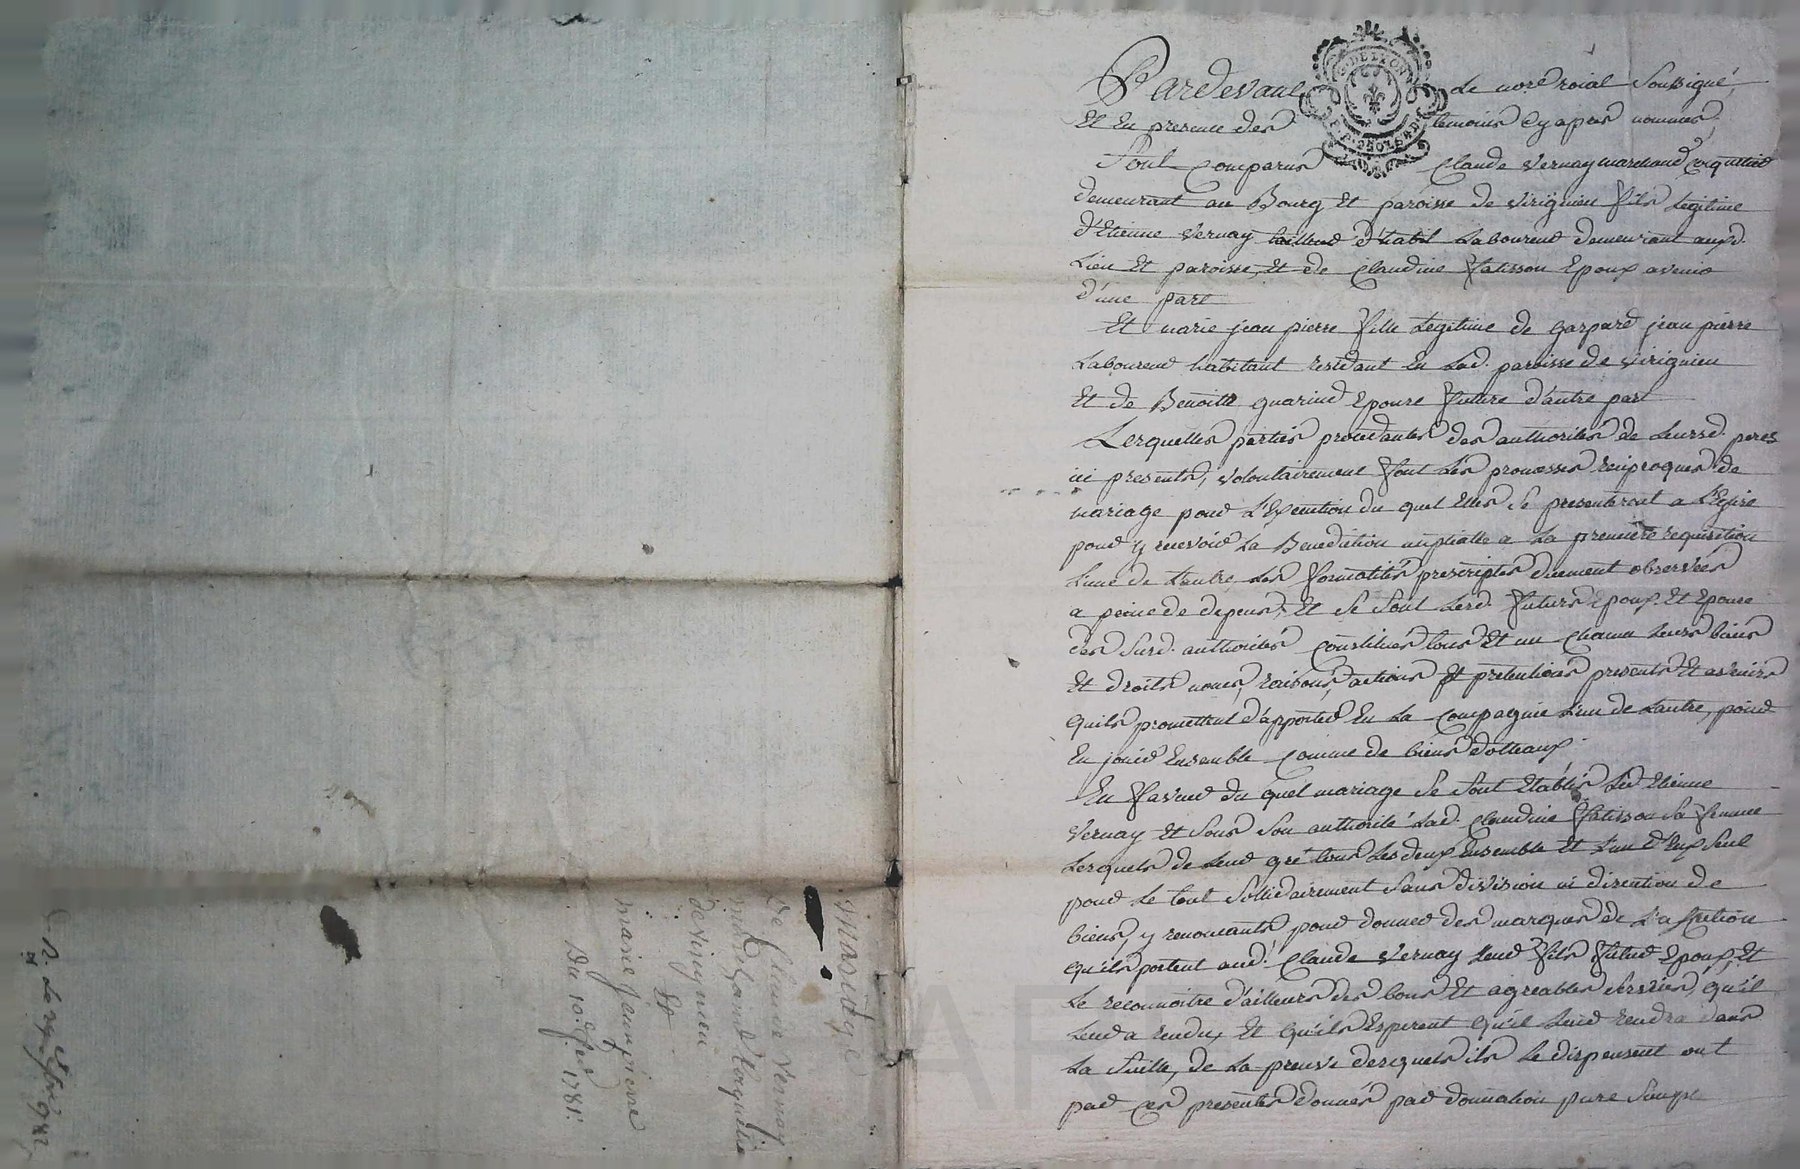 mariage
de Claude Vernay
marchand Coquetié
de virignieu
Et
marie Jeanpierre
Du 10e. fer. 1781.
Pardevant Le nore roial Soussigné,
Et En presence des temoins Cy apres nommés,
Sont Comparus Claude Vernay marchand Coquetier
demeurant au Bourg Et paroisse de Virignieu fils Legitime
d'Etienne Vernay tailleur d'habit Laboureur demeurant auxd.
Lieu Et paroisse, Et de Claudine Fatisson Epoux avenir
d'une part
Et marie jean pierre fille Legitime de gaspard jean pierre
Laboureur habitant residant En Lad. paroisse de virignieu
Et de Benoitte guarind Epouse future d'autre part
Lesquelles parties procedantes des authorités de Leursd. peres
ici presents, volontairement font Les promesses reciproques de
mariage pour L'Execution du quel Elles Se presenteront a L'Eglise
pour y recevoir La Benediction nuptialle a La premiere requisition
L'une de L'autre, Les formalités prescriptes duement observées
a peine de depens, Et Se Sont Lesd. futurs Epoux Et Epouse
des Susd. authorités Constitués tous Et un Chacun Leurs biens
Et droits noms, raisons, actions Et pretentions presents Et avenirs
quils promettent d'apporter En La Compagnie L'un de L'autre, pour
En jouir Ensemble Comme de biens dotteaux.
En faveur du quel mariage Se Sont Etablis Led. Etienne
Vernay Et Sous Son authorité Lad. Claudine Fatisson Sa femme
Lesquels de Leur gré tous Les deux Ensemble Et L'un d'Eux Seul
pour Le tout Sollidairement Sans division ni discution de
biens, y renoncants pour donner des marques de L'affection
qu'ils portent aud. Claude Vernay Leur fils futur Epoux, Et
Le reconnoitre d'ailleurs des bons Et agreables Services, qu'il
Leur a rendu, Et qu'ils Esperent qu'il Leur rendra dans
La Suitte, de La preuve desquels ils Le dispensent ont
par Ces presentes donnés par donnation pure Simple